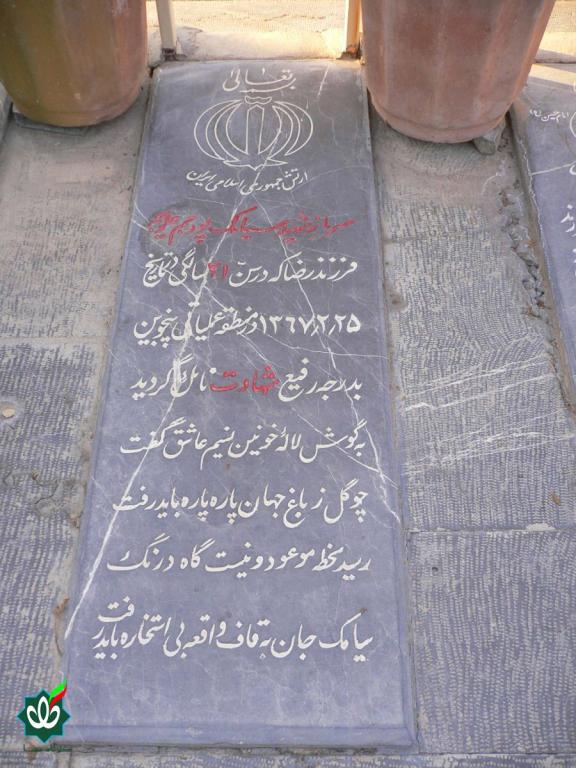 بتعالی
ارتش جمهوری اسلامی ایران
سرباز شهید سیامک
فرزند رضا که در سن ۲۱ سالگی در تاریخ
۱۳۶۷٫۲٫۲۵ در منطقه عملیاتی پنجوین
بدرجه رفیع شهادت نائل گردید
به گوش لاله خونین نسیم عاشق گفت
چو گل ز باغ جهان پاره پاره باید رفت
رسید لحظه موعود و نیست گاه درنگ
سیامک جان به قاف واقعه بی استخاره باید رفت
امام حسین